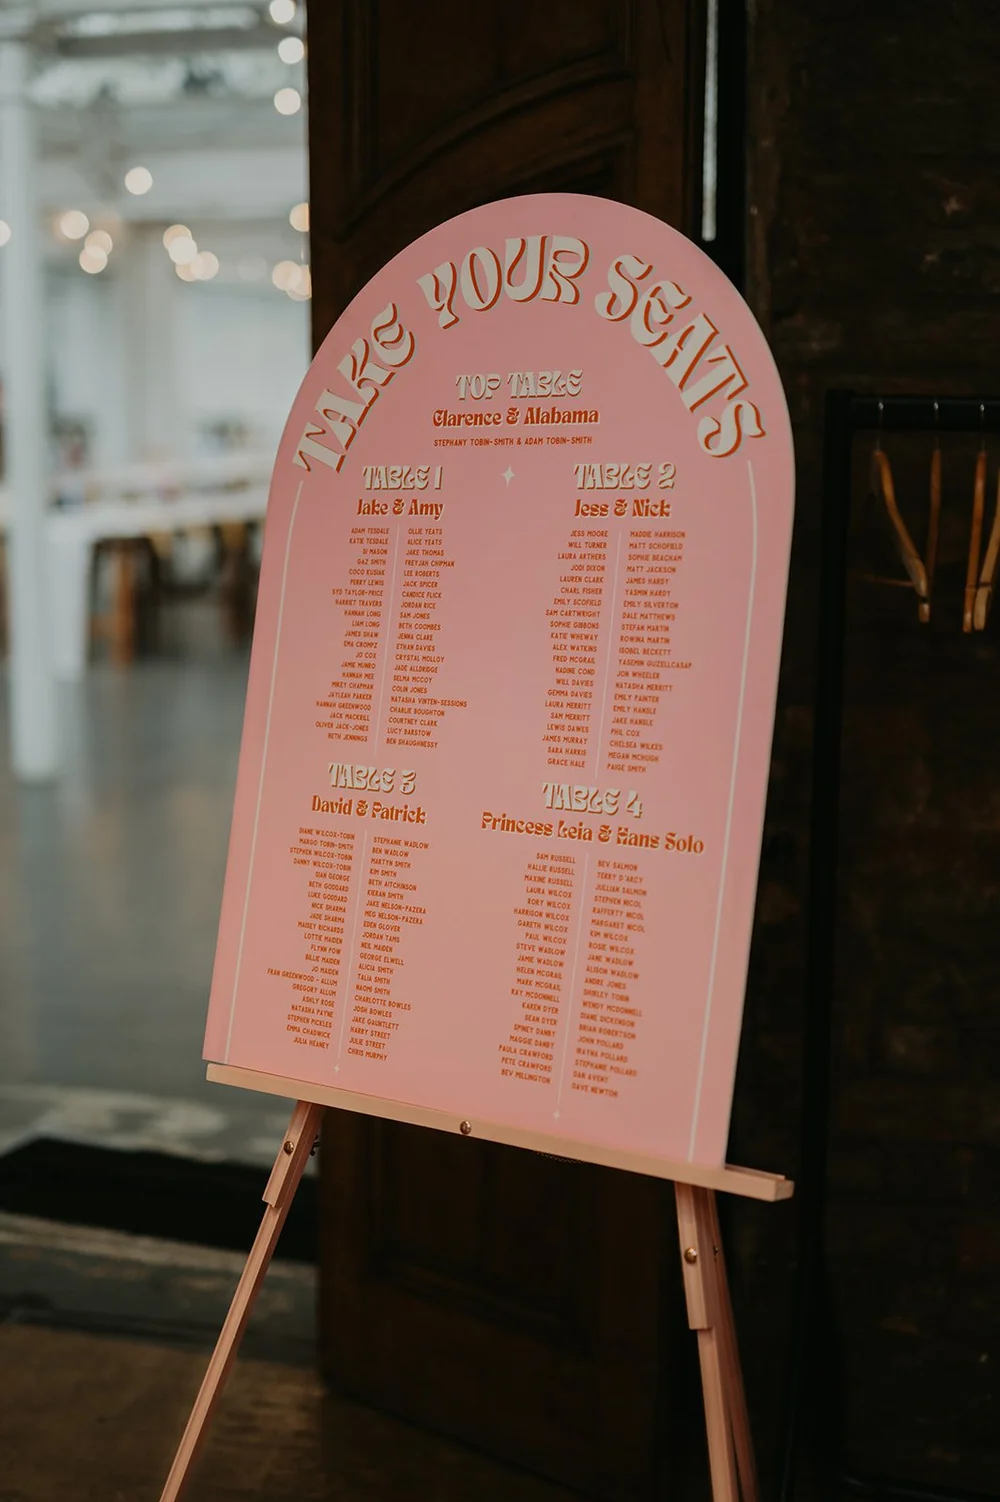 TAKE YOUR SEATS
TOP TABLE
Clarence & Alabama
STEPHANY TOBIN-SMITH & ADAM TOBIN-SMITH
TABLE 1
Jake & Amy
ADAM TESDALE
KATIE TESDALE
SI MASON
GAZ SMITH
COCO KUSIAK
PERRY LEWIS
SYD TAYLOR-PRICE
HARRIET TRAVERS
HANNAH LONG
LIAM LONG
JAMES SHAW
EMA CROMPZ
JO COX
JAMIE MUNRO
HANNAH MEE
MIKEY CHAPMAN
JAYLEAH PARKER
HANNAH GREENWOOD
JACK MACKRILL
OLIVER JACK-JONES
BETH JENNINGS
OLLIE YEATS
ALICE YEATS
JAKE THOMAS
FREYJAH CHIPMAN
LEE ROBERTS
JACK SPICER
CANDICE FLICK
JORDAN RICE
SAM JONES
BETH COOMBES
JENNA CLARE
ETHAN DAVIES
CRYSTAL MOLLOY
JADE ALLDRIDGE
SELMA MCCOY
COLIN JONES
NATASHA VINTEN-SESSIONS
CHARLIE BOUGHTON
COURTNEY CLARK
LUCY BARSTOW
BEN SHAUGHNESSY
TABLE 2
Jess & Nick
JESS MOORE
WILL TURNER
LAURA ARTHERS
JODI DIXON
LAUREN CLARK
CHARL FISHER
EMILY SCOFIELD
SAM CARTWRIGHT
SOPHIE GIBBONS
KATIE WHEWAY
ALEX WATKINS
FRED MCGRAIL
NADINE COND
WILL DAVIES
GEMMA DAVIES
LAURA MERRITT
SAM MERRITT
LEWIS DAWES
JAMES MURRAY
SARA HARRIS
GRACE HALE
MADDIE HARRISON
MATT SCHOFIELD
SOPHIE BEACHAM
MATT JACKSON
JAMES HARDY
YASMIN HARDY
EMILY SILVERTON
DALE MATTHEWS
STEFAN MARTIN
ROWINA MARTIN
ISOBEL BECKETT
YASEMIN GUZELLCASAP
JON WHEELER
NATASHA MERRITT
EMILY PAINTER
EMILY HANSLE
JAKE HANSLE
PHIL COX
CHELSEA WILKES
MEGAN MCHUGH
PAIGE SMITH
TABLE 3
David & Patrick
DIANE WILCOX-TOBIN
MARGO TOBIN-SMITH
STEPHEN WILCOX-TOBIN
DANNY WILCOX-TOBIN
DIAN GEORGE
BETH GODDARD
LUKE GODDARD
NICK SHARMA
JADE SHARMA
MAISEY RICHARDS
LOTTIE MAIDEN
FLYNN POW
BILLIE MAIDEN
JO MAIDEN
FRAN GREENWOOD - ALLUM
GREGORY ALLUM
ASHLY ROSE
NATASHA PAYNE
STEPHEN PICKLES
EMMA CHADWICK
JULIA HEANEY
STEPHANIE WADLOW
BEN WADLOW
MARTYN SMITH
KIM SMITH
BETH AITCHINSON
KIERAN SMITH
JAKE NELSON-PAZERA
MEG NELSON-PAZERA
EDEN GLOVER
JORDAN TAMS
NEIL MAIDEN
GEORGE ELWELL
ALICIA SMITH
TALIA SMITH
NAOMI SMITH
CHARLOTTE BOWLES
JOSH BOWLES
JAKE GAUNTLETT
HARRY STREET
JULIE STREET
CHRIS MURPHY
TABLE 4
Princess Leia & Hans Solo
SAM RUSSELL
HALLIE RUSSELL
MAXINE RUSSELL
LAURA WILCOX
RORY WILCOX
HARRISON WILCOX
GARETH WILCOX
PAUL WILCOX
STEVE WADLOW
JAMIE WADLOW
HELEN MCGRAIL
MARK MCGRAIL
RAY MCDONNELL
KAREN DYER
SEAN DYER
SPINEY DANBY
MAGGIE DANBY
PAULA CRAWFORD
PETE CRAWFORD
BEV MILLINGTON
BEV SALMON
TERRY D'ARCY
JULLIAN SALMON
STEPHEN NICOL
RAFFERTY NICOL
MARGARET NICOL
KIM WILCOX
ROSIE WILCOX
JANE WADLOW
ALISON WADLOW
ANDRE JONES
SHIRLEY TOBIN
WENDY MCDONNELL
DIANE DICKENSON
BRIAN ROBERTSON
JOHN POLLARD
WAYNA POLLARD
STEPHANIE POLLARD
DAN AVENT
DAVE NEWTON